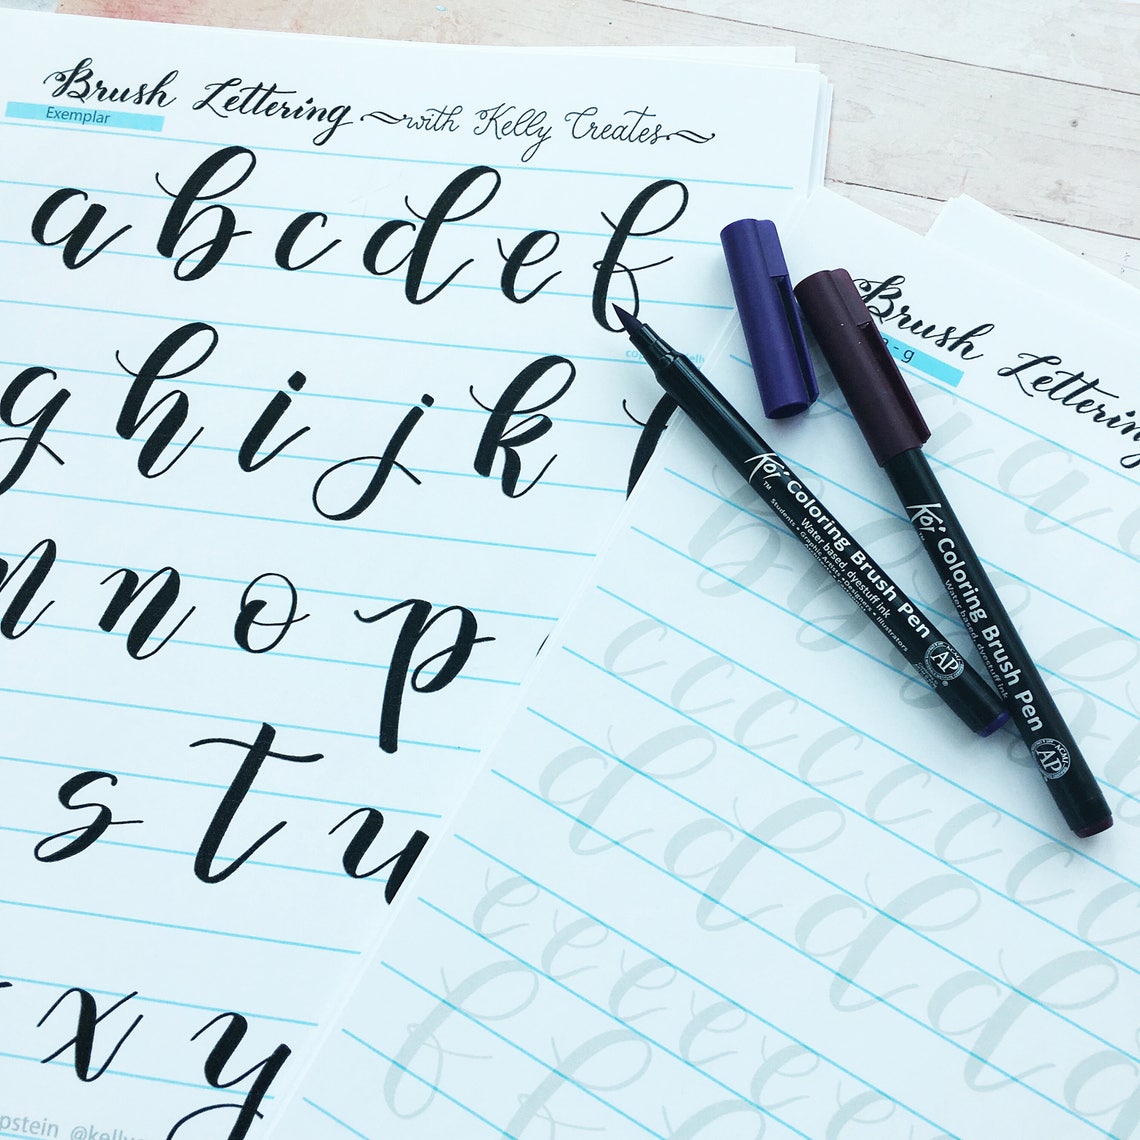 Brush Lettering ~with Kelly Creates~
Exemplar
a b c d e f
g h i j k
n n o p
s t u
x y
pstein @kelly
Brush Lettering
a - g
a a
b b b
c c c c c c c
d d d d
e e e e e
f f
Koi
TM
Coloring Brush Pen
Water based, dyestuff ink
Students • Graphic Artists • Designers • Illustrators
AP
Koi
TM
Coloring Brush Pen
Water based, dyestuff ink
ACMI
AP